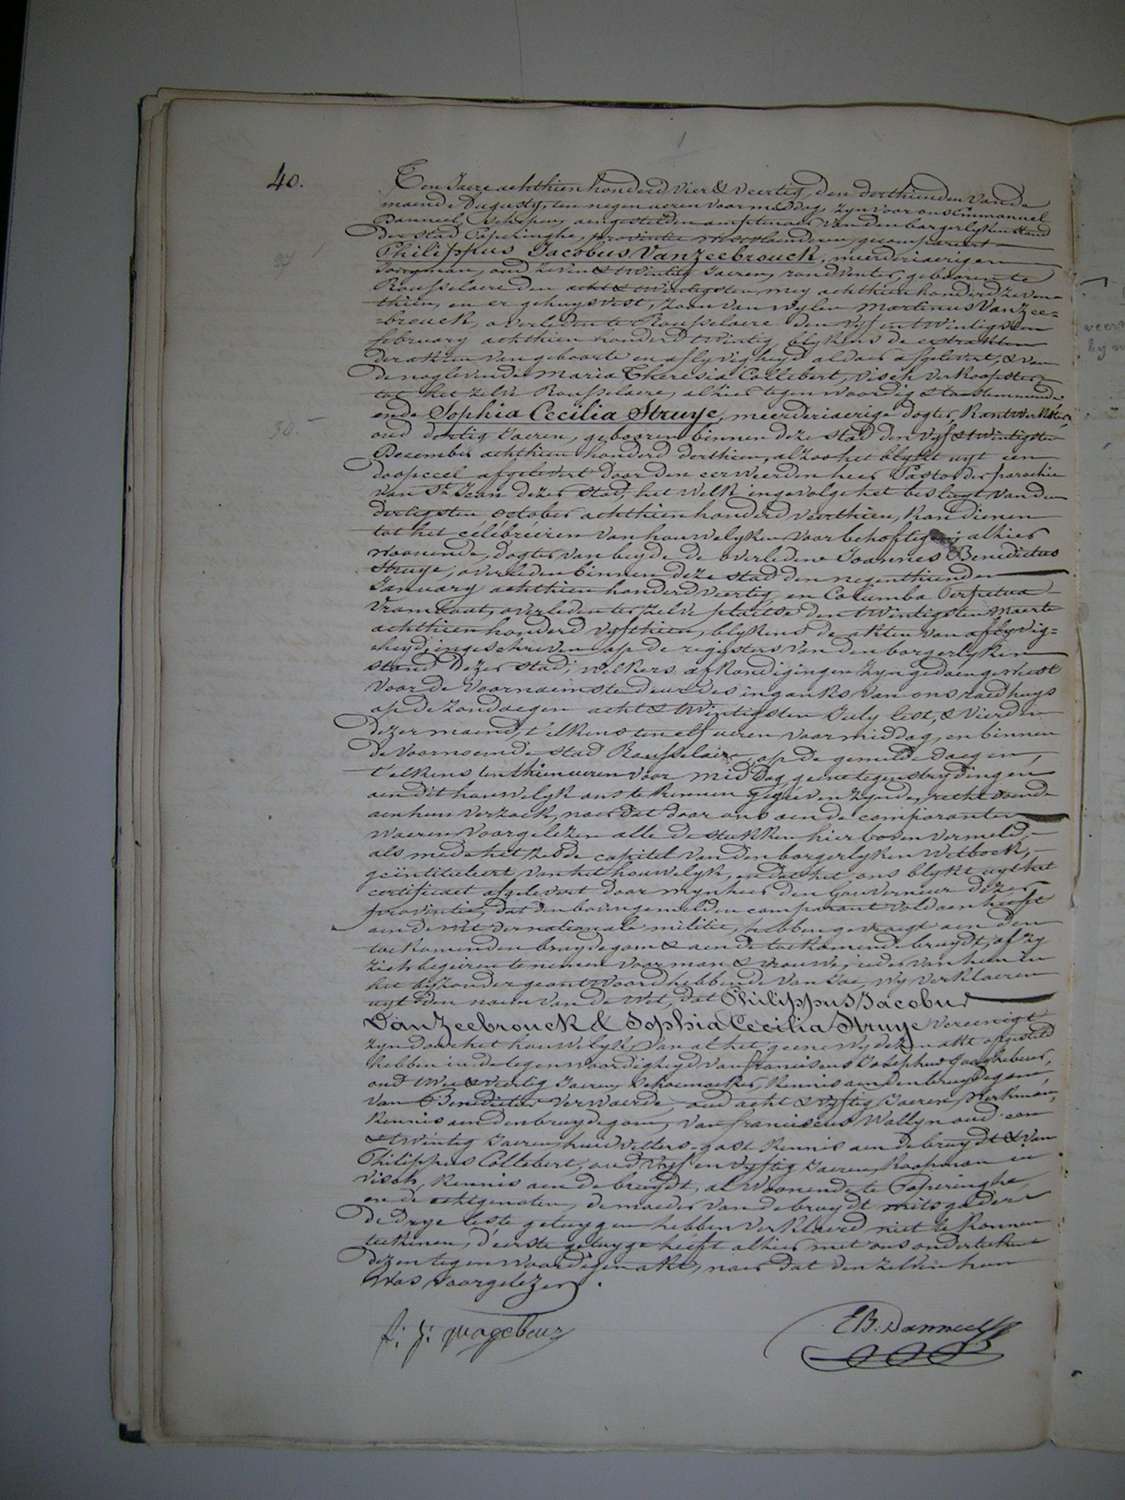 40.
Ten Jaere achthien honderd vier & veertig, den derthienden van de
maend Augusty, ten negen uren voormiddag, zyn voor ons Emmanuel
Danneel, schepen, aengestelden amptenaer van den borgerlyken stand
der stad Poperinghe, provintie Westvlaenderen, gecompareert
Philippus Jacobus Vanzeebrouck, meerderiaerigen
Jongman, oud zeven & twintig Jaeren, geboren te
Rousselaere den acht & twintigsten mey achthien honderd zeven=
thien, en er gehuysvest, zoon van wylen Martinus Vanzee=
=brouck, overleden te Rousselaere den vyf en twintigsten
february achthien honderd twintig, blykens de extrakten
der akten van geboorte en aflyvigheyd aldaer afgelevert, & van
de naglevende Maria Theresia Collebert, visch verkoopster
tot het zelve Rousselaere, alhier tegenwoordig & toestemmende
ende Sophia Cecilia Struye, meerderiaerige dogter, Kantwerkster,
oud dertig Jaeren, gebooren binnen deze stad den vyf & twintigsten
December achthien honderd derthien, alzoo het blykt uyt een
doopceel afgelevert door den eerweerden heer Pastor der parochie
van St Jans dezer stad, het welk ingevolge het besluyt van den
dertigsten october achthien honderd veerthien, kan dienen
tot het célébréeren van houwelyken voor behoeftigen, alhier
woonende, dogter van beyde de overledene Joannes Benedictus
Struye, overleden binnen deze stad den negenthienden
January achthien honderd veertig, en Columba Perpetua
Vrambout, overleden ter zelve plaetse den twintigsten Maerte
achthien honderd vyfthien, blykens de akten van aflyvig=
=heyd ingeschreven op de registers van den borgerlyken
stand dezer stad; welkers afkondigingen zyn gedaen geweest
voor de voornaemste deur des ingangs van ons raedhuys
op de zondagen acht & twintigsten July lest, & vierden
dezer maend, t'elkens ten elf uren voormiddag, en binnen
de voornoemde stad Rousselaere, op de gemelde dagen,
t'elkens ten thien uren voor middag, geene tegenstrydingen
aen dit houwelyk ons te kennen gegeven zynde, recht doende
aen hun verzoek, naer dat door ons aen de comparanten
waeren voorgelezen alle de stukken hier boven vermeld,
als mede het zesde capitel van den borgerlyken Wetboek,
geïntituleert van het houwelyk, en dat het ons blykt uyt het
certificaet afgelevert door mynheer den Gouverneur dezer
provintie, dat den bovengemelden comparant voldaen heeft
aen de wet der nationale militie, hebben gevraegt aen den
toekomenden bruydegom & aen de toekomende bruydt, of zy
zich begeiren te nemen voor man & vrouwe; ieder van hun in
het byzonder geantwoord hebbende van Jae, wy verklaeren
uyt den naem van de wet, dat Philippus Jacobus
Vanzeebrouck & Sophia Cecilia Struye vereenigt
zyn door het houwelyk, van al het geene wy deze akt opgesteld
hebben in de tegenwoordigheyd van Franciscus Josephus Quaghebeur,
oud twee & veertig Jaeren, schoenmaeker, kennis aen den bruydegom,
van Benedictus Verwaerde oud acht & vyftig Jaeren, Werkman,
kennis aen den bruydegom, van Franciscus Wallyn oud een
& twintig Jaeren, huydevetters gast kennis aen de bruydt & van
Philippus Collebert, oud vyf en vyftig Jaeren, Koopman in
visch, kennis aen de bruydt, al woonende te Poperinghe,
en de echtgenoten, de moeder van de bruydt mitsgaders
de drye leste getuygen hebben verklaerd niet te konnen
teekenen, d'eerste getuyge heeft alhier met ons onderteekent
dezen tegenwoordigen akt, naer dat den zelven hun
was voorgelezen.
f: j: quagebeur
EB. Danneel